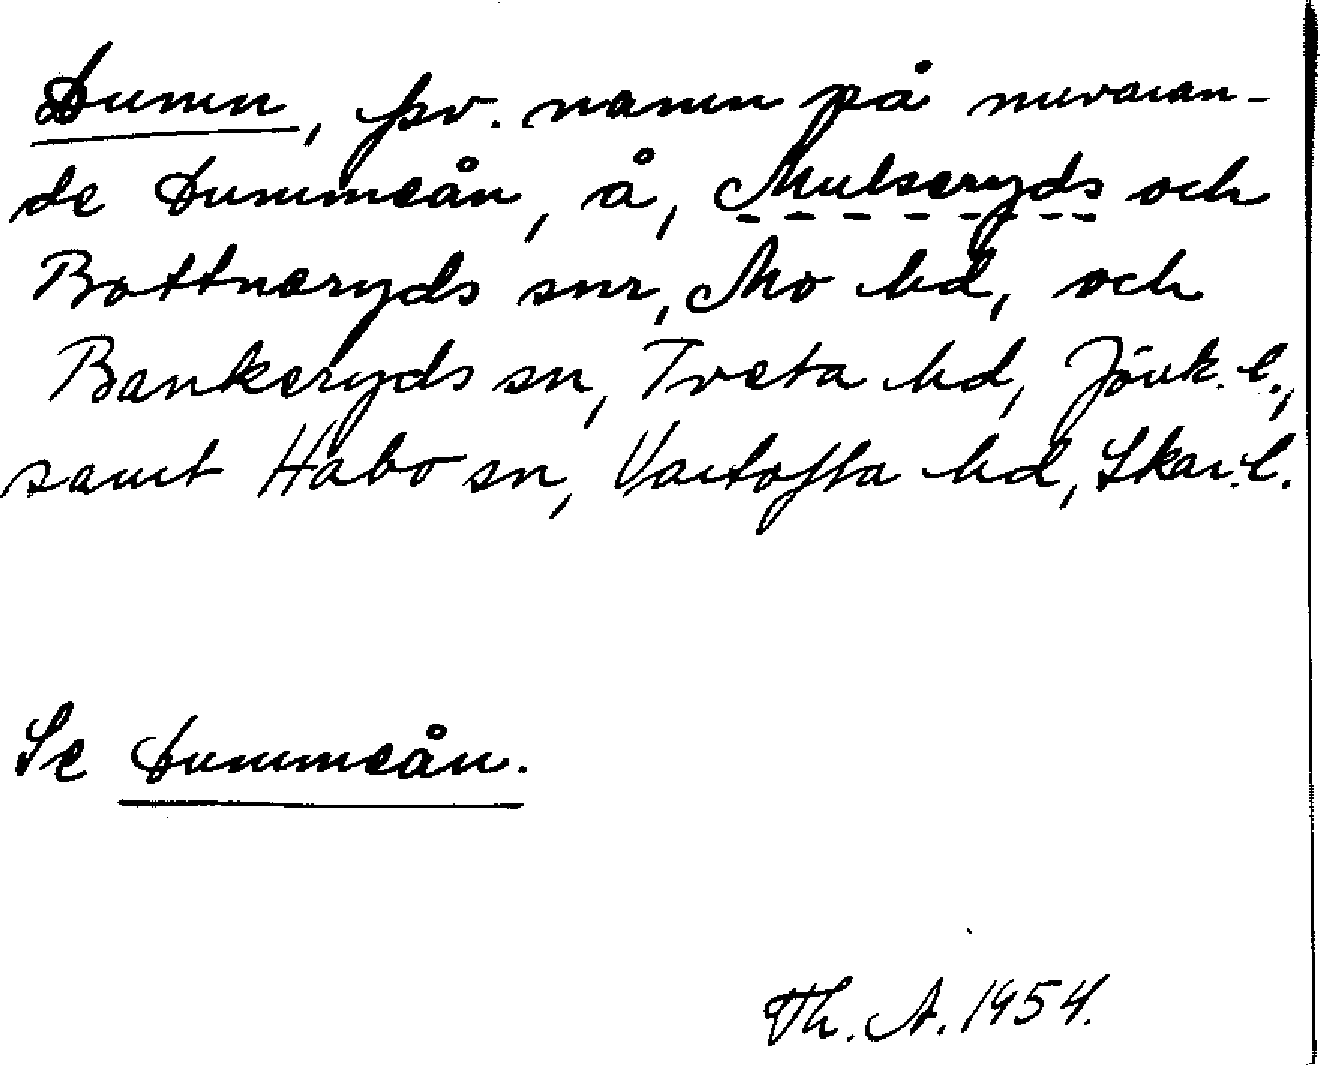 Dumn, fsv. namn på nuvaran-
de Dummeån, å, Mulseryds och
Bottnaryds snr, Mo hd, och
Bankeryds sn, Tveta hd, Jönk. l.,
samt Habo sn, Vartofta hd, Skar. l.
Se Dummeån.
Th. A. 1954.